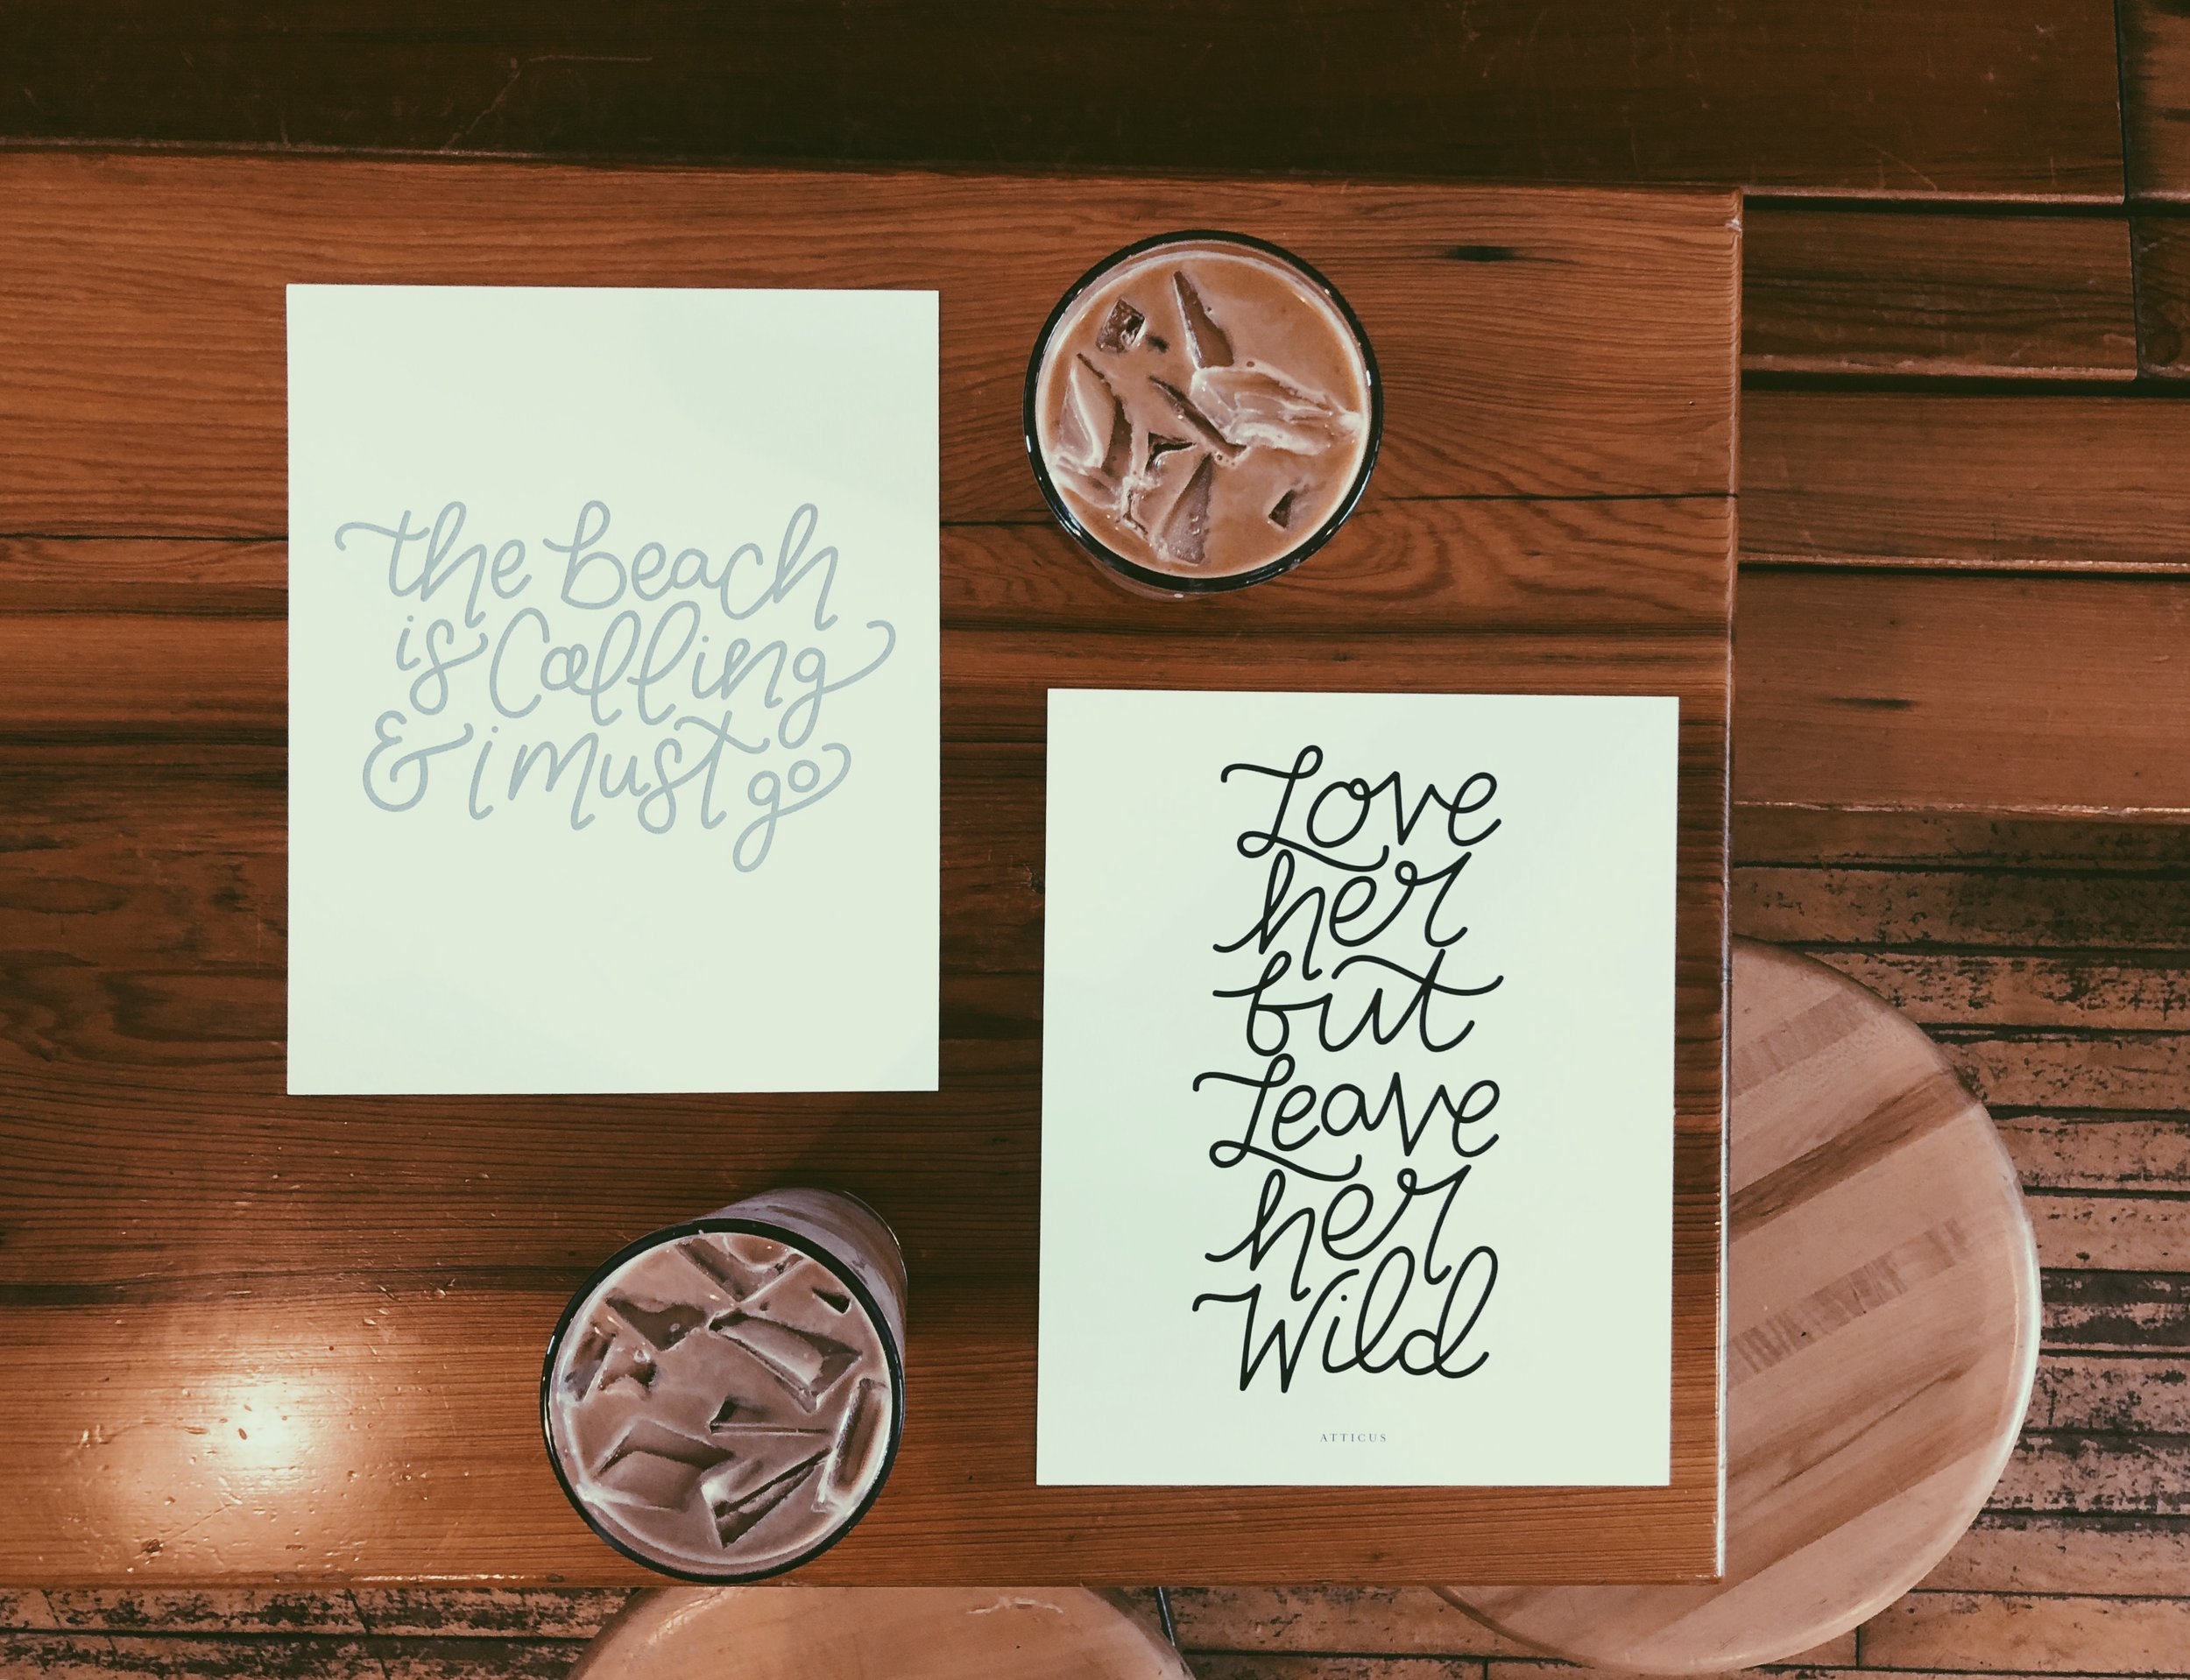 the beach
is Calling
& i must go
Love
her
but
Leave
her
Wild
ATTICUS